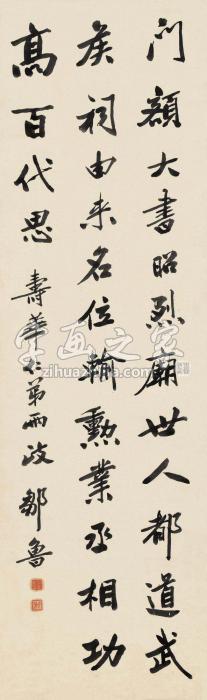 門額大書昭烈廟世人都道武
矦祠由来名位輸勲業丞相功
髙百代思
壽華仁弟兩政 鄒魯
字画之家
zihuazhijia.com